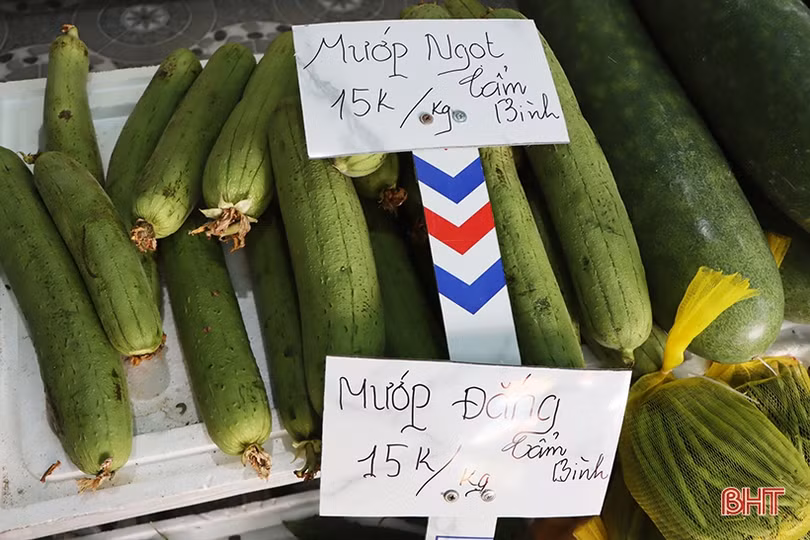 Mướp Ngọt
15K/kg Cẩm
Bình
Mướp Đắng
15K/kg Cẩm
Bình
BHT